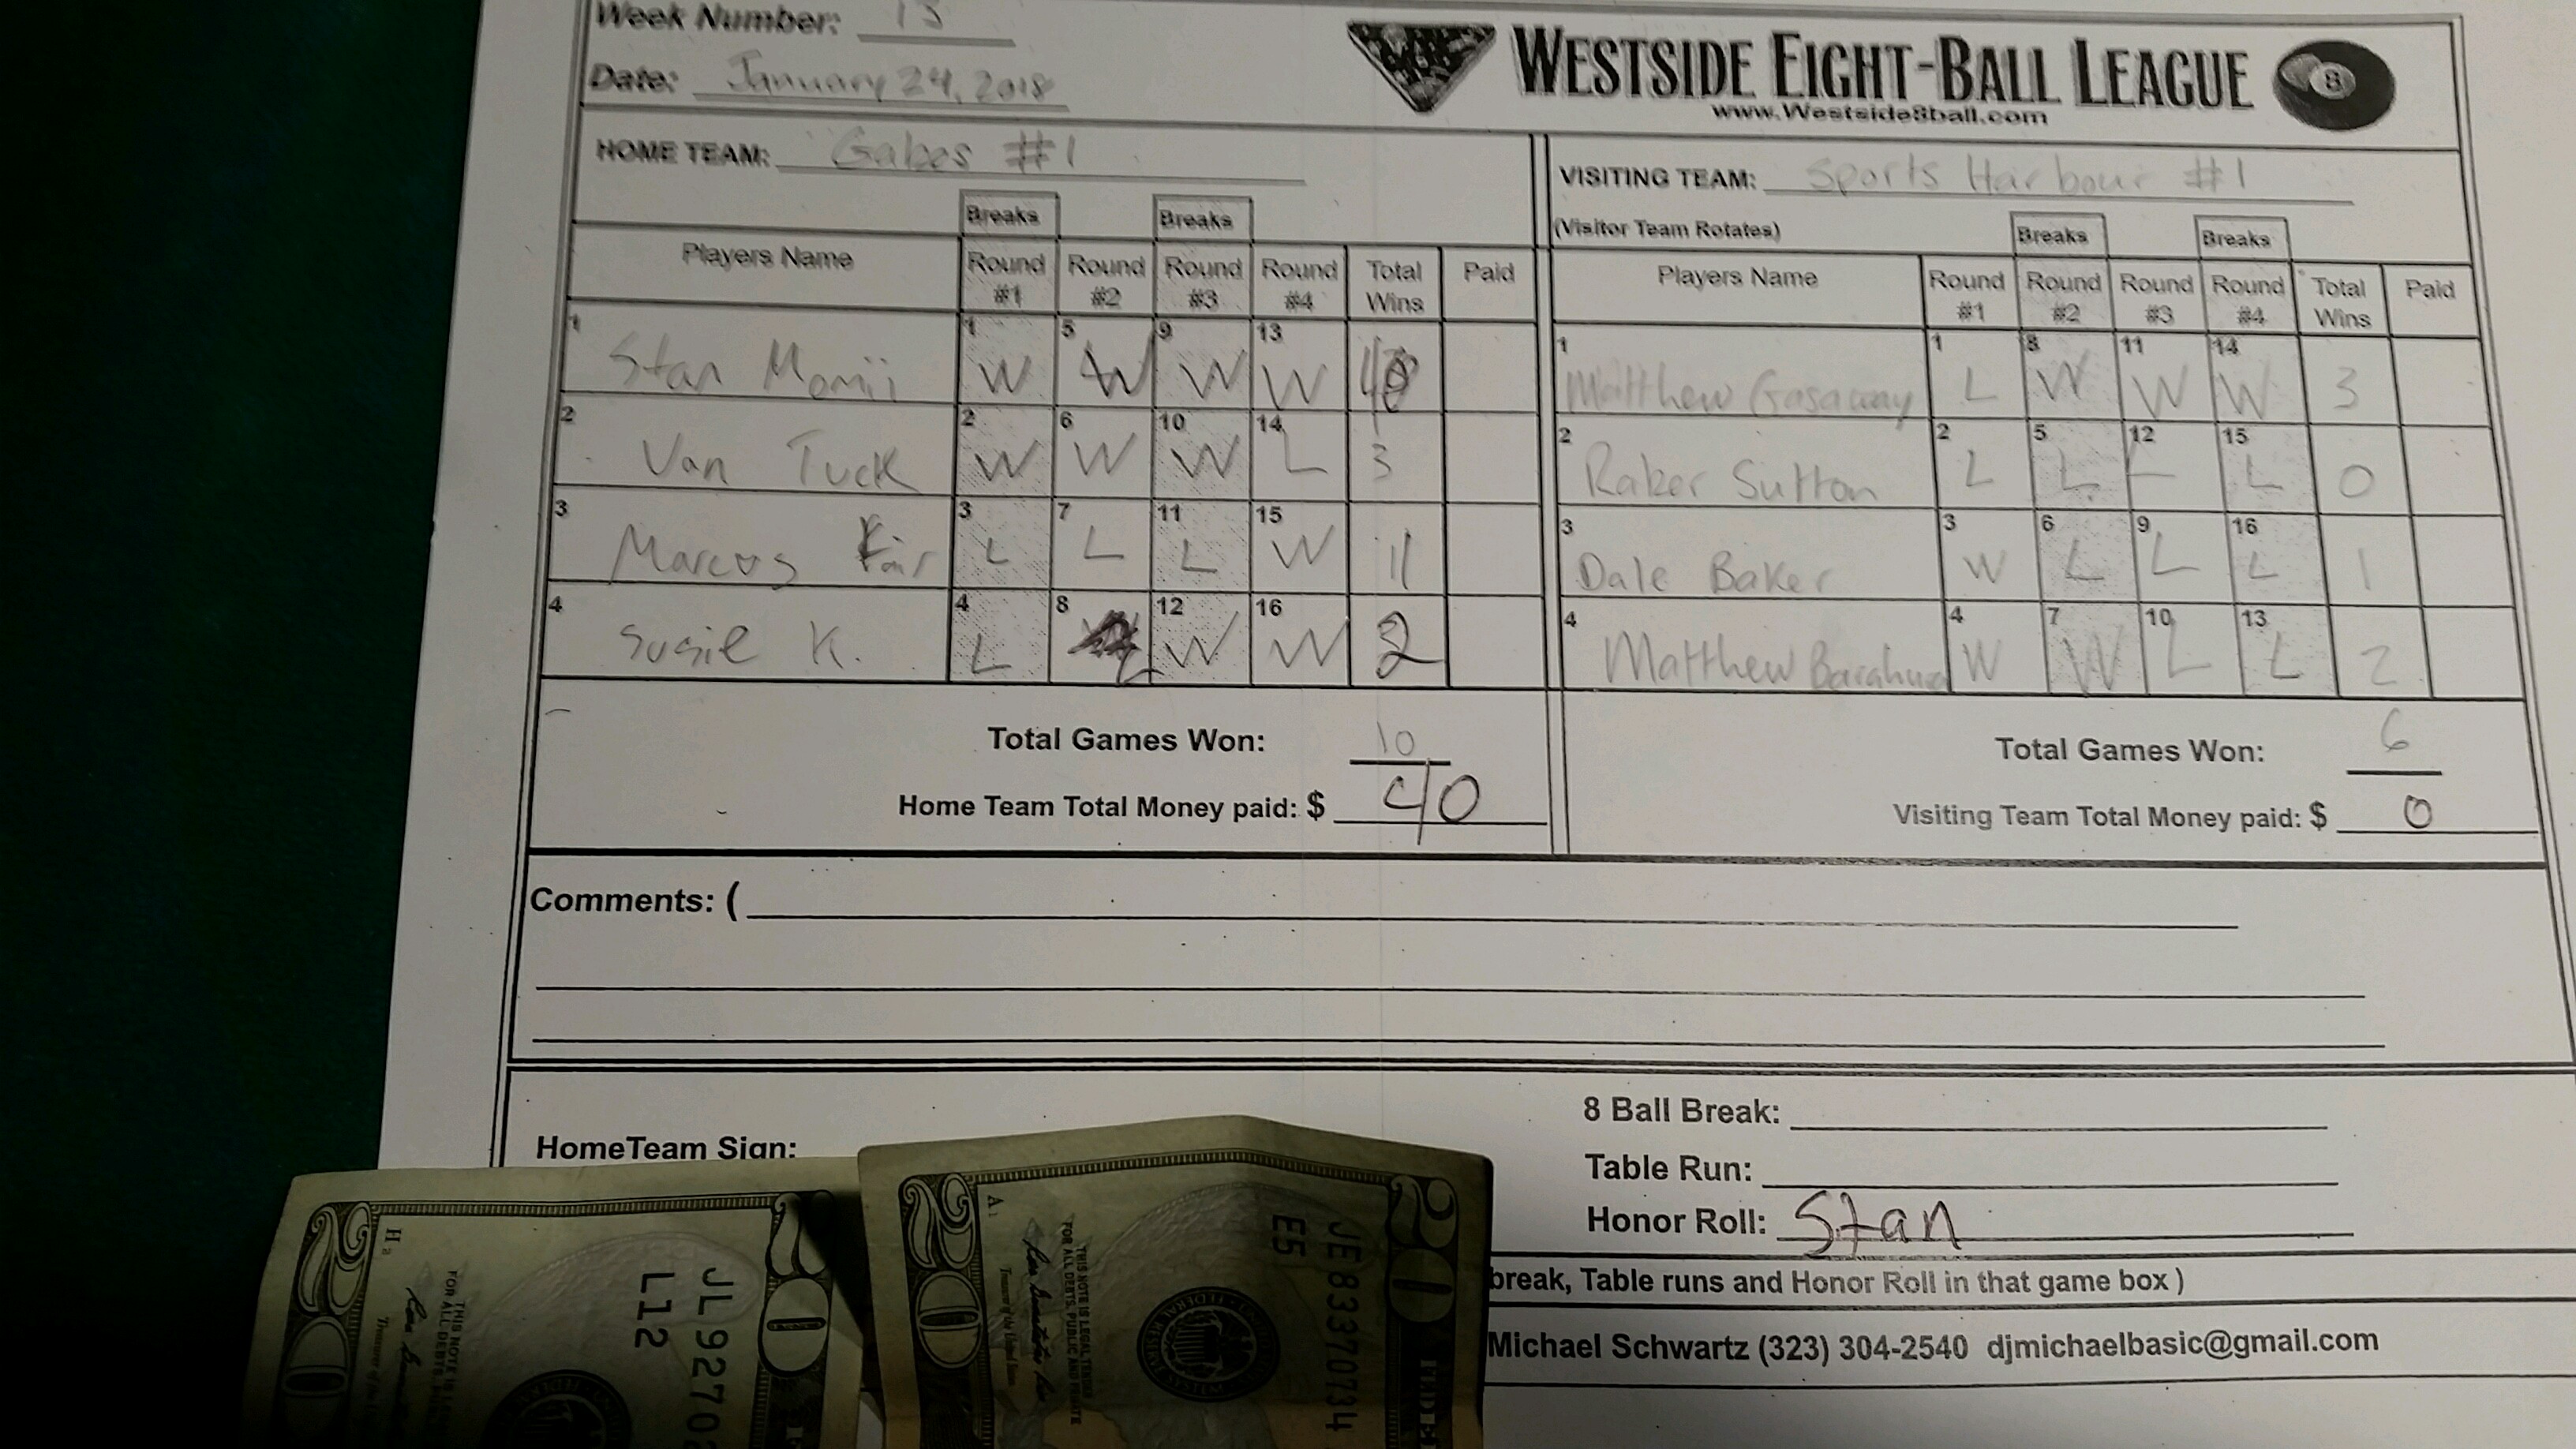 Week Number: 13
Date: January 24, 2018
WESTSIDE EIGHT-BALL LEAGUE 8
www.Westside8ball.com
HOME TEAM: Gabes #1
VISITING TEAM: Sports Harbour #1
(Visitor Team Rotates)
Breaks Breaks
Players Name Round #1 Round #2 Round #3 Round #4 Total Wins Paid
1 Stan Momii 1 W 5 W 9 W 13 W 4
2 Van Tuck 2 W 6 W 10 W 14 L 3
3 Marcus Fair 3 L 7 L 11 L 15 W 1
4 Susie K. 4 L 8 L 12 W 16 W 2
Total Games Won: 10
Home Team Total Money paid: $ 40
Breaks Breaks
Players Name Round #1 Round #2 Round #3 Round #4 Total Wins Paid
1 Matthew Gasaway 1 L 8 W 11 W 14 W 3
2 Raker Sutton 2 L 5 L 12 L 15 L 0
3 Dale Baker 3 W 6 L 9 L 16 L 1
4 Matthew 4 W 7 W 10 L 13 L 2
Total Games Won: 6
Visiting Team Total Money paid: $ 0
Comments: (
HomeTeam Sign:
8 Ball Break:
Table Run:
Honor Roll: Stan
break, Table runs and Honor Roll in that game box )
Michael Schwartz (323) 304-2540 djmichaelbasic@gmail.com
20 20
H2
JL9270
L12
THIS NOTE IS
FOR ALL DEBTS,
20 20
A1
JE83370734
E5
THIS NOTE IS LEGAL TENDER
FOR ALL DEBTS, PUBLIC AND PRIVATE